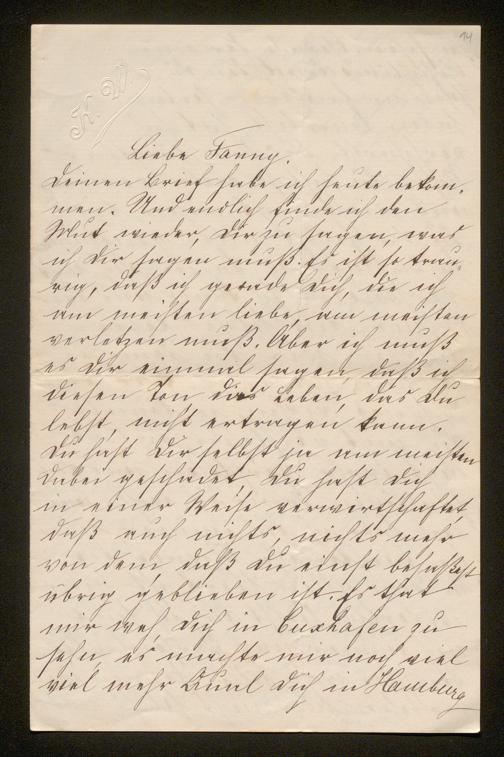 14
K. W.
Liebe Fanny.
Deinen Brief habe ich heute bekom-
men. Und endlich finde ich den
Mut wieder, Dir zu sagen, was
ich Dir sagen muß. Es ist so trau-
rig, daß ich gerade Dich, die ich
am meisten liebe, am meisten
verletzen muß. Aber ich muß
es Dir einmal sagen, daß ich
diesen Ton das Leben, das Du
lebst, nicht ertragen kann.
Du hast Dir selbst ja am meisten
dabei geschadet, Du hast Dich
in einer Weise verwirthschaftet,
daß auch nichts, nichts mehr
von dem, daß Du einst besaßest
übrig geblieben ist. Es that
mir weh, Dich in Cuxhafen zu
sehn, es machte mir noch viel
viel mehr Qual Dich in Hamburg